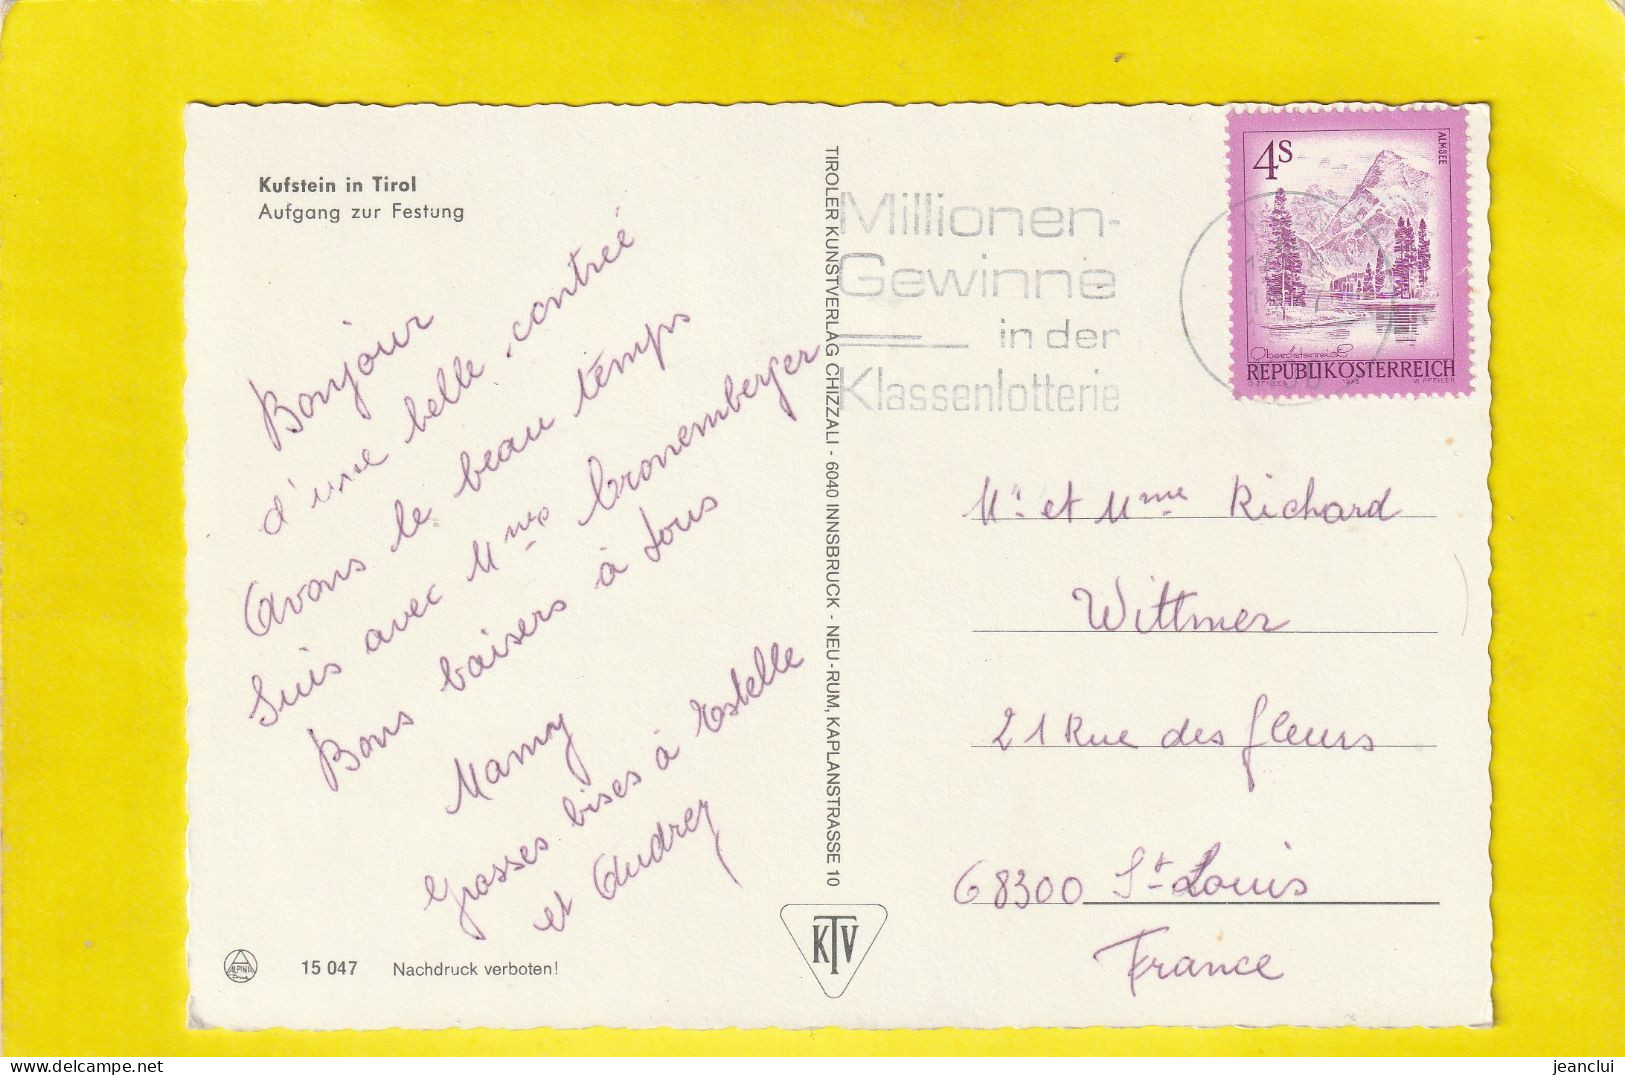 Kufstein in Tirol
Aufgang zur Festung
Bonjour
d'une belle contrée
Avons le beau temps
Suis avec Mmes Cronemberger
Bons baisers à tous
Mamy
Grosses bises à Estelle
et Audrey
ALPINA
15 047 Nachdruck verboten!
TIROLER KUNSTVERLAG CHIZZALI - 6040 INNSBRUCK - NEU-RUM, KAPLANSTRASSE 10
KTV
Millionen-
Gewinne
in der
Klassenlotterie
4S
ALMSEE
Oberösterreich
REPUBLIK ÖSTERREICH
O. ZEILLER 1973 W. PFEILER
Mr et Mme Richard
Wittmer
21 Rue des fleurs
68300 St Louis
France
jeanclui